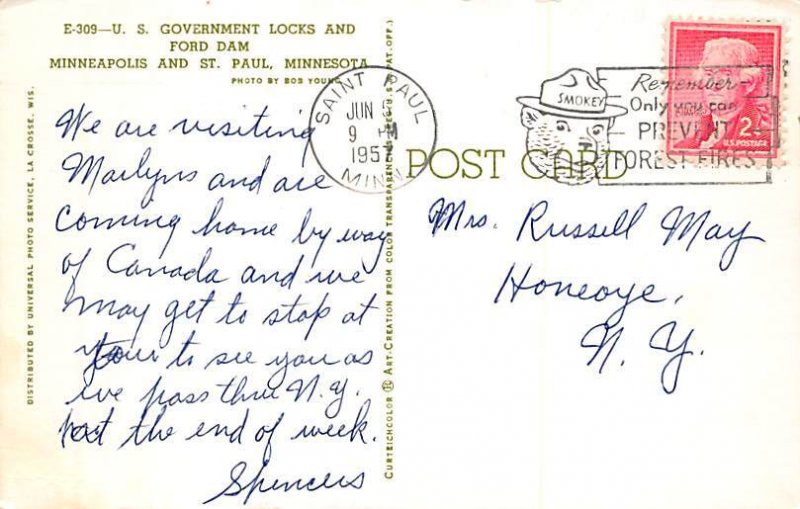 E-309—U. S. GOVERNMENT LOCKS AND
FORD DAM
MINNEAPOLIS AND ST. PAUL, MINNESOTA
PHOTO BY BOB YOUNG
We are visiting
Marlyns and are
coming home by way
of Canada and we
may get to stop at
to see you as
we pass thru N.Y.
the end of week.
Spencers
DISTRIBUTED BY UNIVERSAL PHOTO SERVICE, LA CROSSE, WIS.
CURTEICHCOLOR ® ART-CREATION FROM COLOR TRANSPARENCY (REG. U.S. PAT. OFF.)
SAINT PAUL
JUN
9 M
1957
MINN.
SMOKEY
Remember—
Only you can
PREVENT
FOREST FIRES
2¢
U.S. POSTAGE
POST CARD
Mrs. Russell May
Honeoye,
N. Y.